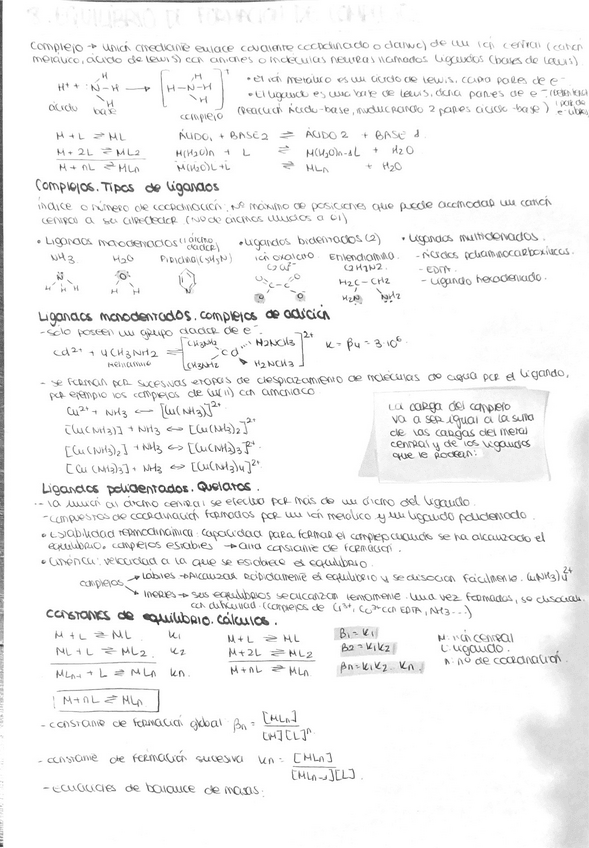 Complejo → unión (mediante enlace covalente coordinado o dativo) de un ión central (catión
metálico, ácido de lewis) con aniones o moléculas neutras llamados ligandos (bases de lewis)
• el ión metálico es un ácido de lewis, capta pares de e⁻
• El ligando es una base de lewis, dona pares de e⁻
ácido base complejo (reacción ácido-base, involucrando 2 pares ácido-base)
M + L ⇌ ML ÁCIDO₁ + BASE 2 ⇌ ÁCIDO 2 + BASE 1
M + 2L ⇌ ML2 M(H2O)n + L ⇌ M(H2O)n-1L + H2O
M + nL ⇌ MLn M(H2O)L + L ⇌ MLn + H2O
Complejos. Tipos de ligandos
índice o número de coordinación: Nº máximo de posiciones que puede acomodar un catión
central a su alrededor (Nº de átomos unidos a él)
• Ligandos monodentados (1 átomo dador) • Ligandos bidentados (2) • Ligandos multidentados.
NH3 H2O Piridina (C5H5N) ión oxalato Etilendiamina - Ácidos poliaminocarboxílicos.
- EDTA.
- Ligando hexadentado.
Ligandos monodentados. Complejos de adición
- solo poseen un grupo dador de e⁻.
Cd²⁺ + 4CH3NH2 ⇌ [CH3NH2 CH3NH2 Cd H2NCH3 H2NCH3]²⁺ K = β4 = 3·10⁶
metilamina
- se forman por sucesivas etapas de desplazamiento de moléculas de agua por el ligando,
por ejemplo los complejos de Cu(II) con amoniaco
Cu²⁺ + NH3 ⟷ [Cu(NH3)]²⁺
[Cu(NH3)] + NH3 ⇔ [Cu(NH3)2]²⁺
[Cu(NH3)2] + NH3 ⇔ [Cu(NH3)3]²⁺
[Cu(NH3)3] + NH3 ⇔ [Cu(NH3)4]²⁺
La carga del complejo
va a ser igual a la suma
de las cargas del metal
central y de los ligandos
que le rodean.
Ligandos polidentados. Quelatos.
- la unión al átomo central se efectúa por más de un átomo del ligando.
- compuestos de coordinación formados por un ión metálico y un ligando polidentado.
• Estabilidad termodinámica: capacidad para formar el complejo cuando se ha alcanzado el
equilibrio. complejos estables → alta constante de formación.
• Cinética: velocidad a la que se establece el equilibrio.
complejos → lábiles → Alcanzar rápidamente el equilibrio y se disocian fácilmente.
→ inertes → sus equilibrios se alcanzan lentamente. Una vez formados, se disocian
con dificultad (complejos de Cr³⁺, Co³⁺ con EDTA, NH3...)
Constantes de equilibrio. Cálculos.
M + L ⇌ ML K1 M + L ⇌ ML β1 = K1 M: ión central
ML + L ⇌ ML2 K2 M + 2L ⇌ ML2 β2 = K1K2 L: ligando.
MLn-1 + L ⇌ MLn Kn. M + nL ⇌ MLn βn = K1K2...Kn. n: nº de coordinación.
M + nL ⇌ MLn
- constante de formación global: βn = [MLn] / [M][L]ⁿ
- constante de formación sucesiva Kn = [MLn] / [MLn-1][L].
- Ecuaciones de balance de masas: